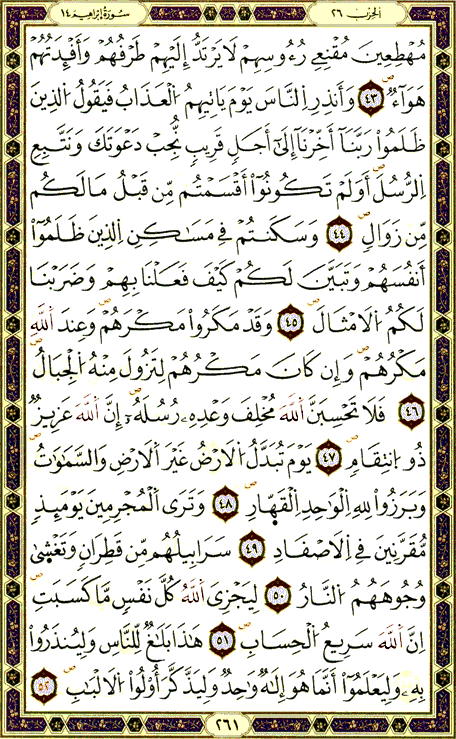 الحزب ٢٦
سورة إبراهيم ١٤
مُهْطِعِينَ مُقْنِعِے رُءُوسِهِمْ لَا يَرْتَدُّ إِلَيْهِمْ طَرْفُهُمْ وَأَفْـِٕدَتُهُمْ
هَوَآءٌ ٤٣ وَأَنذِرِ اِلنَّاسَ يَوْمَ يَاتِيهِمُ اُلْعَذَابُ فَيَقُولُ اُلذِينَ
ظَلَمُواْ رَبَّنَآ أَخِّرْنَآ إِلَىٰٓ أَجَلٖ قَرِيبٖ نُّجِبْ دَعْوَتَكَ وَنَتَّبِعِ
اِلرُّسُلَ أَوَلَمْ تَكُونُوٓاْ أَقْسَمْتُم مِّن قَبْلُ مَا لَكُم
مِّن زَوَالٖ ٤٤ وَسَكَنتُمْ فِے مَسَٰكِنِ اِلذِينَ ظَلَمُوٓاْ
أَنفُسَهُمْ وَتَبَيَّنَ لَكُمْ كَيْفَ فَعَلْنَا بِهِمْ وَضَرَبْنَا
لَكُمُ اُلَامْثَالَ ٤٥ وَقَدْ مَكَرُواْ مَكْرَهُمْ وَعِندَ اَللَّهِ
مَكْرُهُمْ وَإِن كَانَ مَكْرُهُمْ لِتَزُولَ مِنْهُ اُلْجِبَالُ
٤٦ فَلَا تَحْسِبَنَّ اَللَّهَ مُخْلِفَ وَعْدِهِۦ رُسُلَهُۥٓ إِنَّ اَللَّهَ عَزِيزٌ
ذُو اُنتِقَامٖ ٤٧ يَوْمَ تُبَدَّلُ اُلَارْضُ غَيْرَ اَلَارْضِ وَالسَّمَٰوَٰتُ
وَبَرَزُواْ لِلهِ اِلْوَٰحِدِ اِلْقَهّ۪ارِ ٤٨ وَتَرَى اَلْمُجْرِمِينَ يَوْمَئِذٖ
مُّقَرَّنِينَ فِے اِلَاصْفَادِ ٤٩ سَرَابِيلُهُم مِّن قَطِرَانٖ وَتَغْشَىٰ
وُجُوهَهُمُ اُلنَّارُ ٥٠ لِيَجْزِىَ اَللَّهُ كُلَّ نَفْسٖ مَّا كَسَبَتِ
اِنَّ اَللَّهَ سَرِيعُ اُلْحِسَابِ ٥١ هَٰذَا بَلَٰغٌ لِّلنَّاسِ وَلِيُنذَرُواْ
بِهِۦ وَلِيَعْلَمُوٓاْ أَنَّمَا هُوَ إِلَٰهٌ وَٰحِدٌ وَلِيَذَّكَّرَ أُوْلُواْ اُلَالْبَٰبِ ٥٢
٢٦١